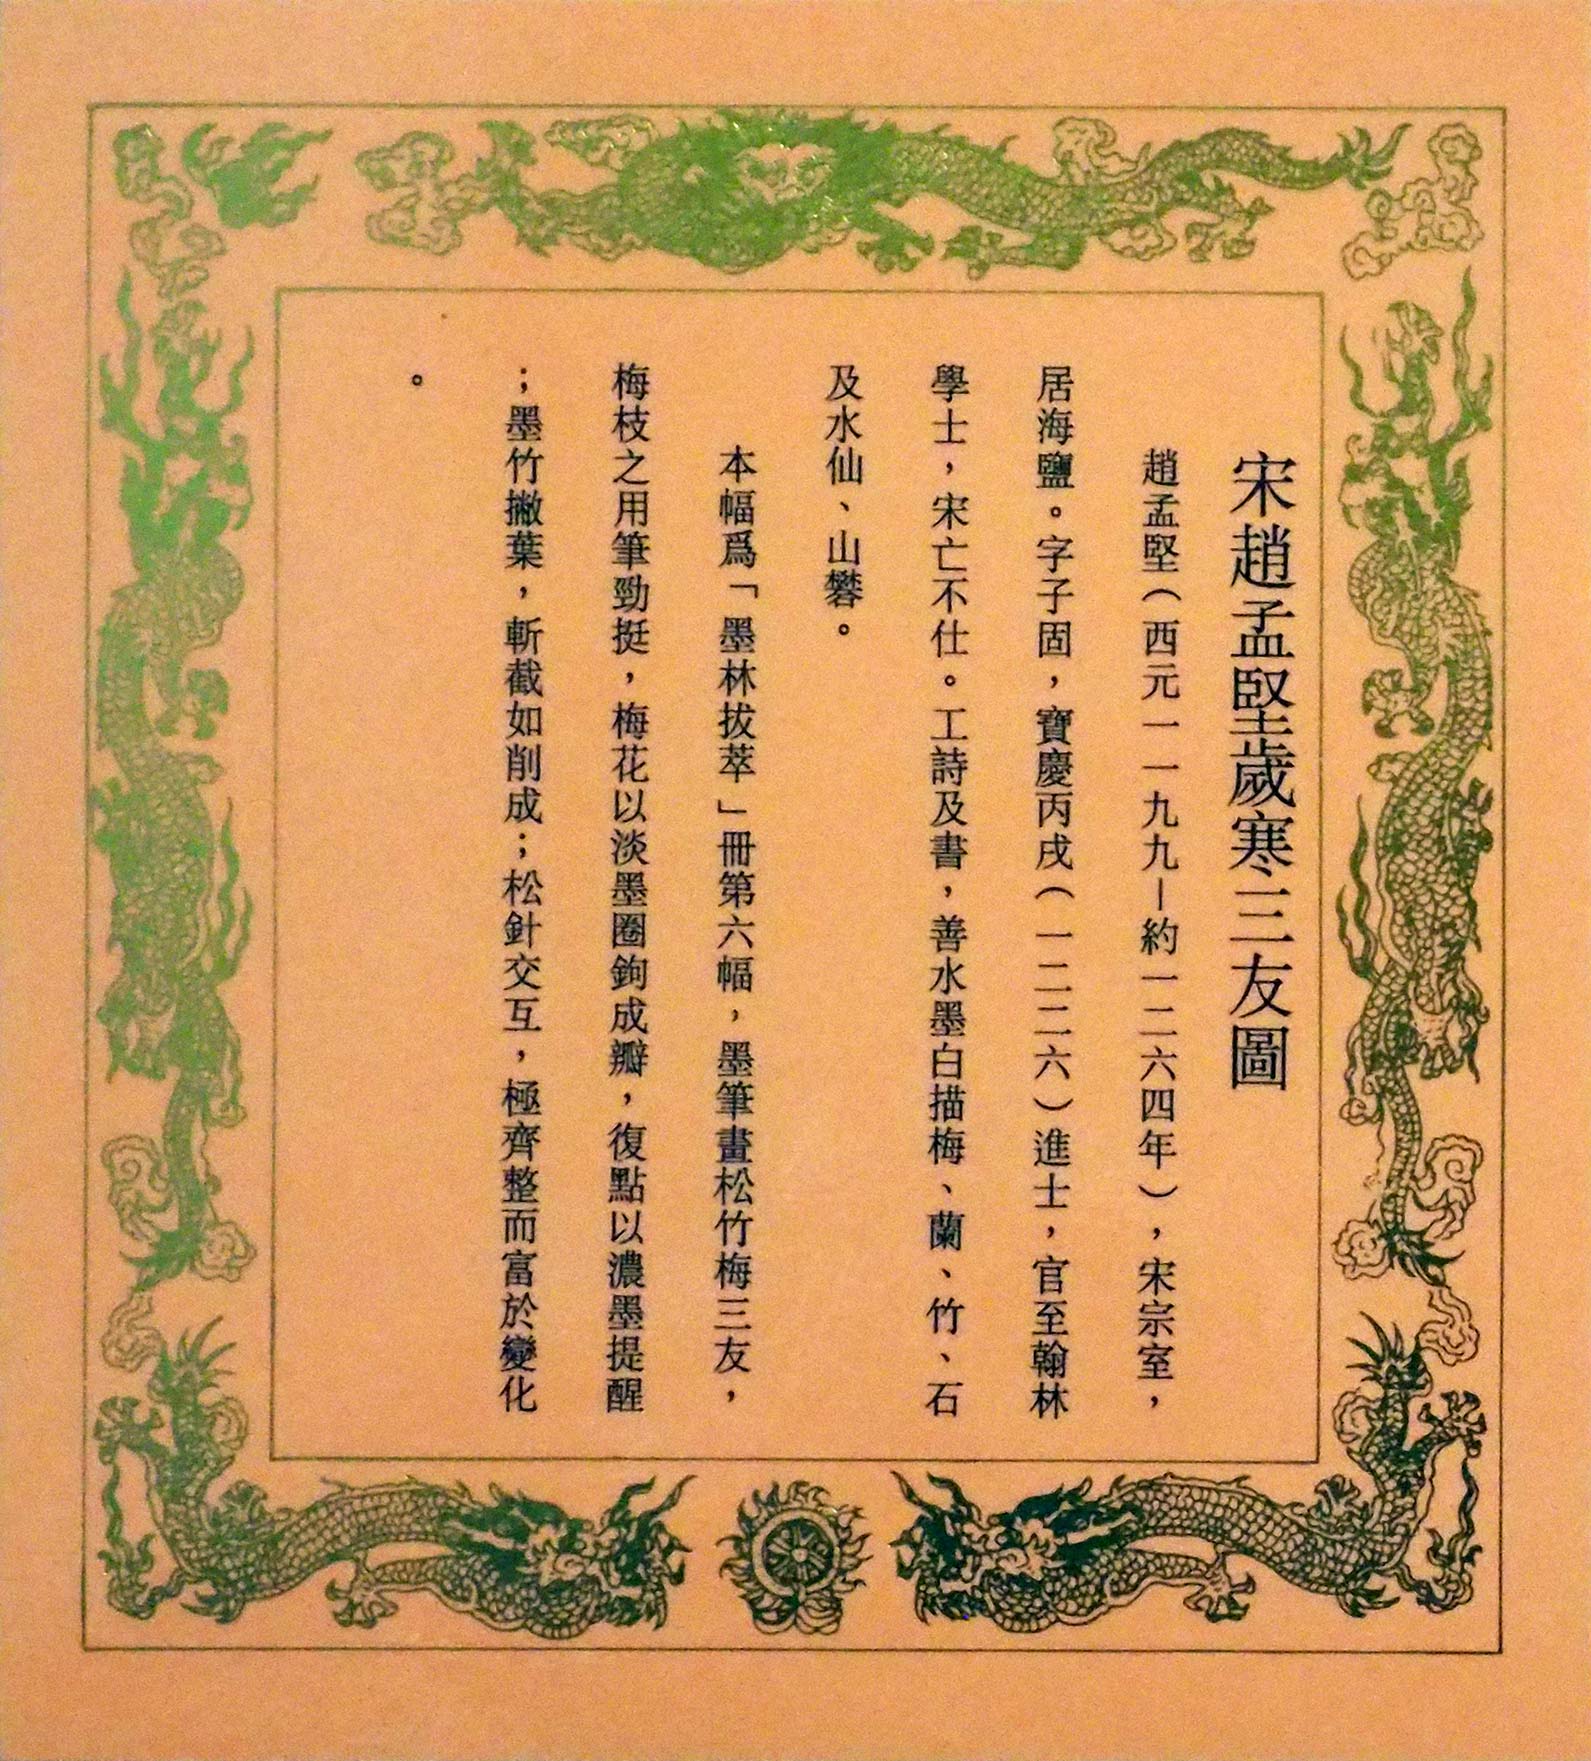 宋趙孟堅歲寒三友圖
趙孟堅（西元一一九九－約一二六四年），宋宗室，
居海鹽。字子固，寶慶丙戌（一二二六）進士，官至翰林
學士，宋亡不仕。工詩及書，善水墨白描梅、蘭、竹、石
及水仙、山礬。
本幅爲「墨林拔萃」冊第六幅，墨筆畫松竹梅三友，
梅枝之用筆勁挺，梅花以淡墨圈鉤成瓣，復點以濃墨提醒
；墨竹撇葉，斬截如削成；松針交互，極齊整而富於變化
。